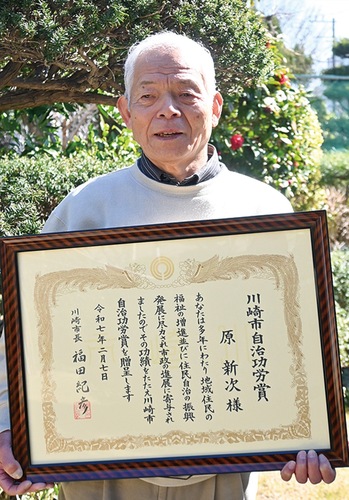 川崎市自治功労賞
原 新次様
あなたは多年にわたり地域住民の
福祉の増進並びに住民自治の振興
発展に尽力され市政の進展に寄与され
ましたのでその功績をたたえ川崎市
自治功労賞を贈呈します
令和七年二月七日
川崎市長 福田紀彦